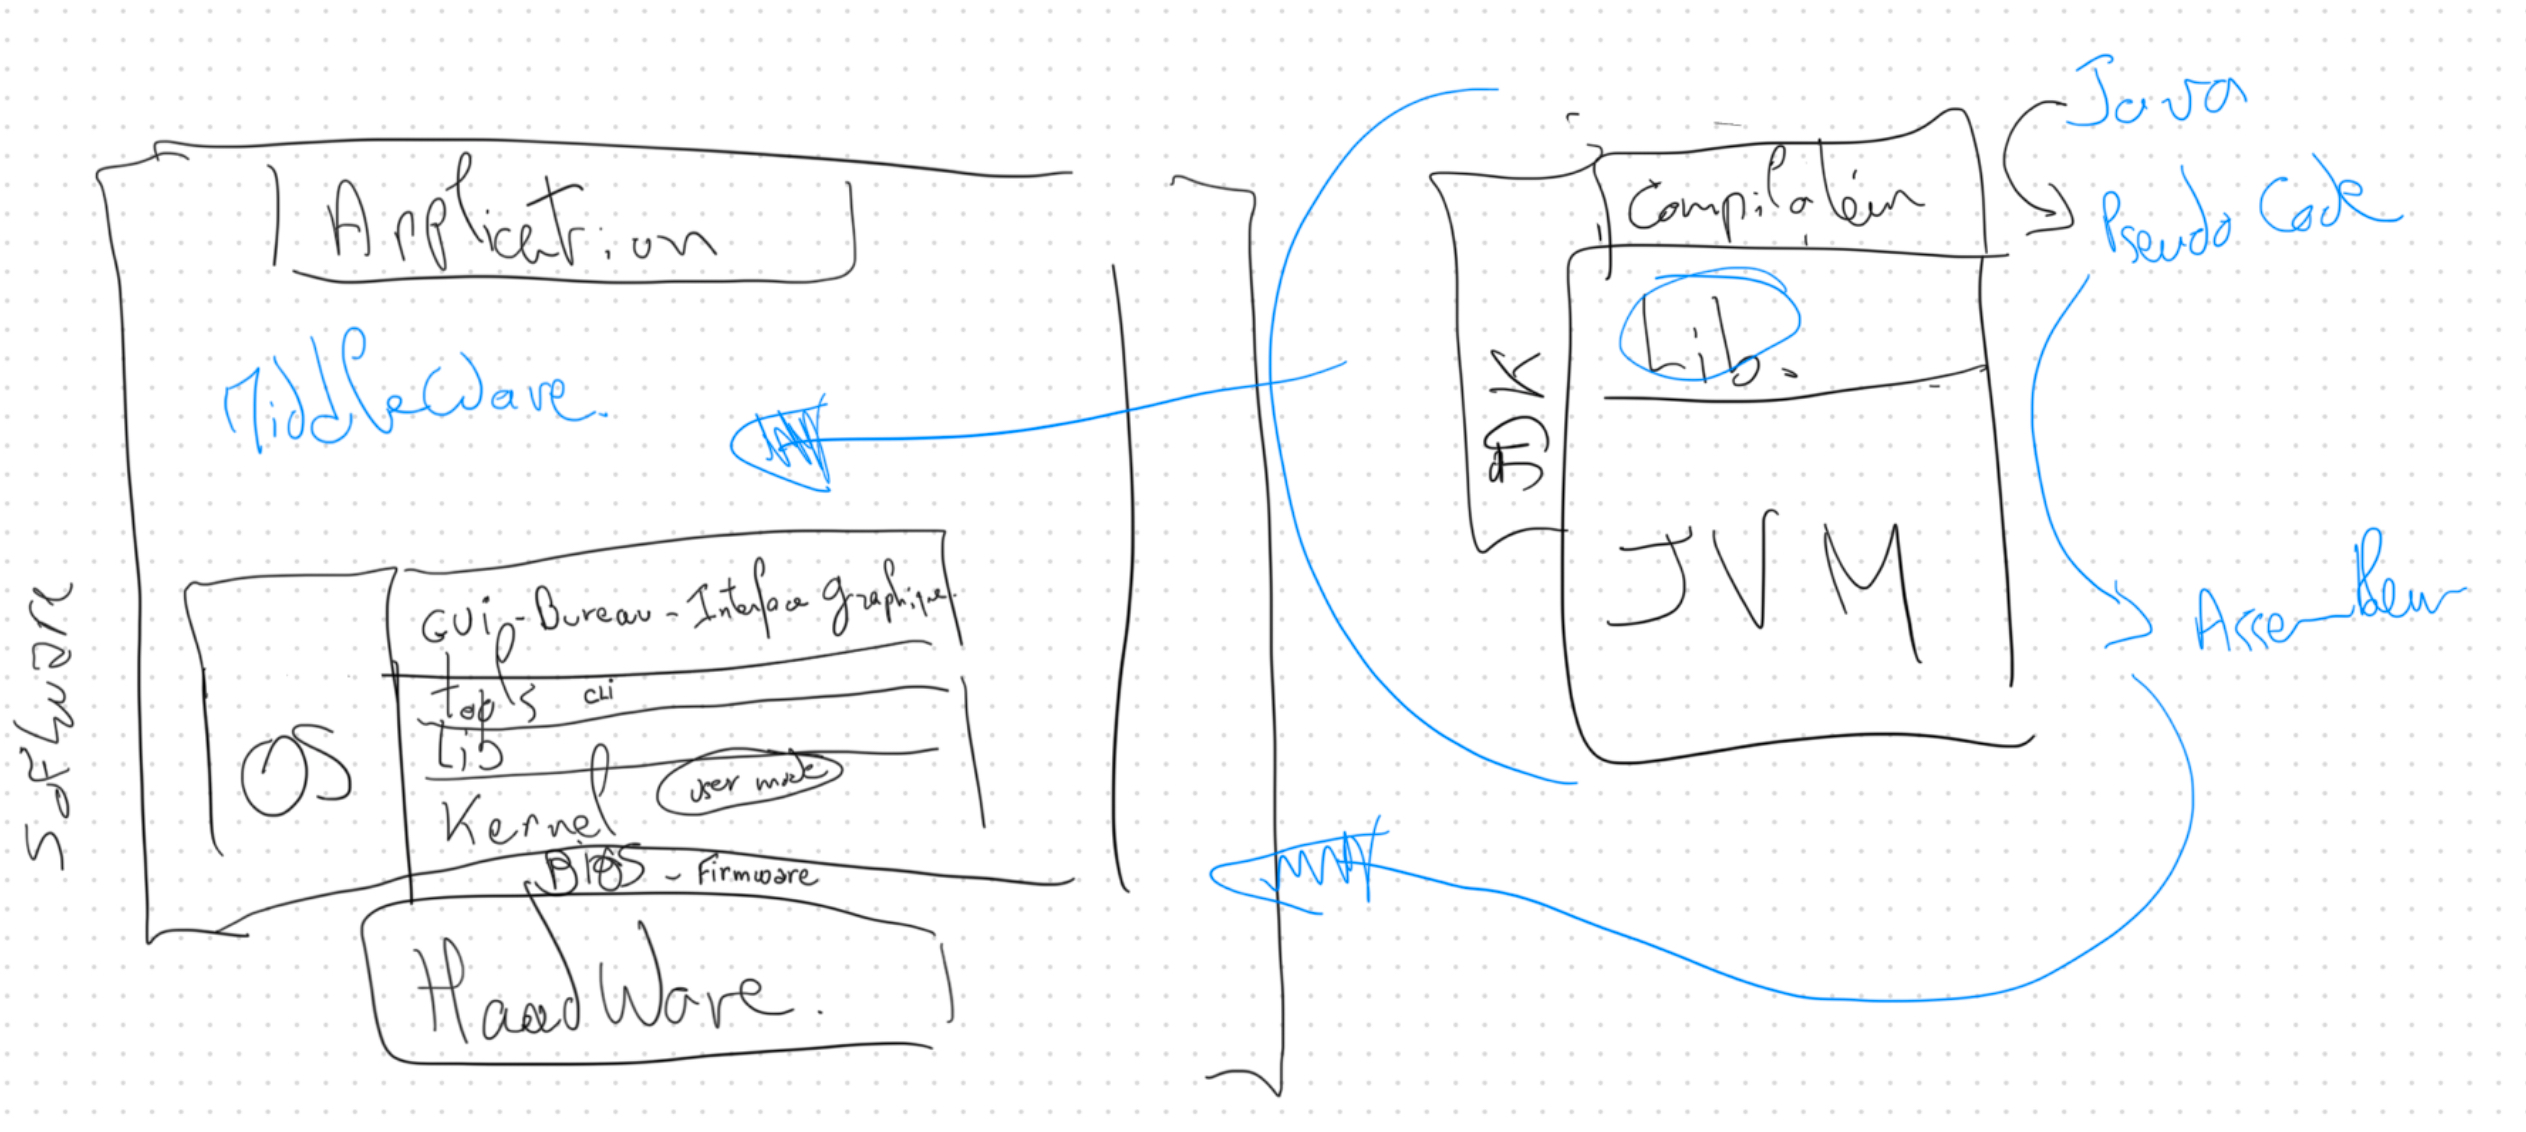 Application
MiddleWare.
Software
OS
GUi - Bureau - Interface graphique
Lib
CLi
Kernel
user mode
BIOS - Firmware
HardWare.
JDK
Compilateur
Lib.
JVM
Java
Pseudo Code
Assembleur